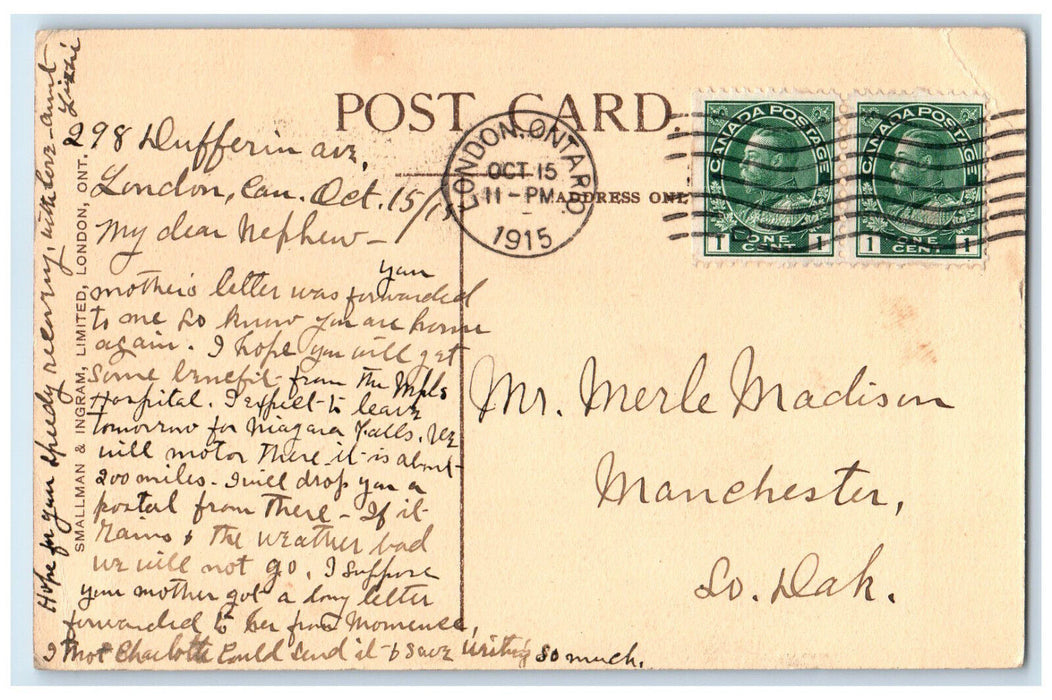 POST CARD.
ADDRESS ONL
LONDON, ONTARIO
OCT 15
11-PM
1915
CANADA POSTAGE
1 ONE CENT 1
CANADA POSTAGE
1 ONE CENT 1
298 Dufferin ave,
London, Can. Oct. 15/15
My dear Nephew -
your
mother's letter was forwarded
to me so know you are home
again. I hope you will get
some benefit from the Mpls
Hospital. I expect to leave
tomorrow for Niagara Falls. We
will motor there it is about
200 miles - I will drop you a
postal from there - If it
rains & the weather bad
we will not go. I suppose
your mother got a long letter
forwarded to her from Momence,
I thot Charlotte Could send it & save writing so much.
Hope for your speedy recovery, with love - aunt
Lizzie
SMALLMAN & INGRAM, LIMITED, LONDON, ONT.
Mr. Merle Madison
Manchester,
So. Dak.